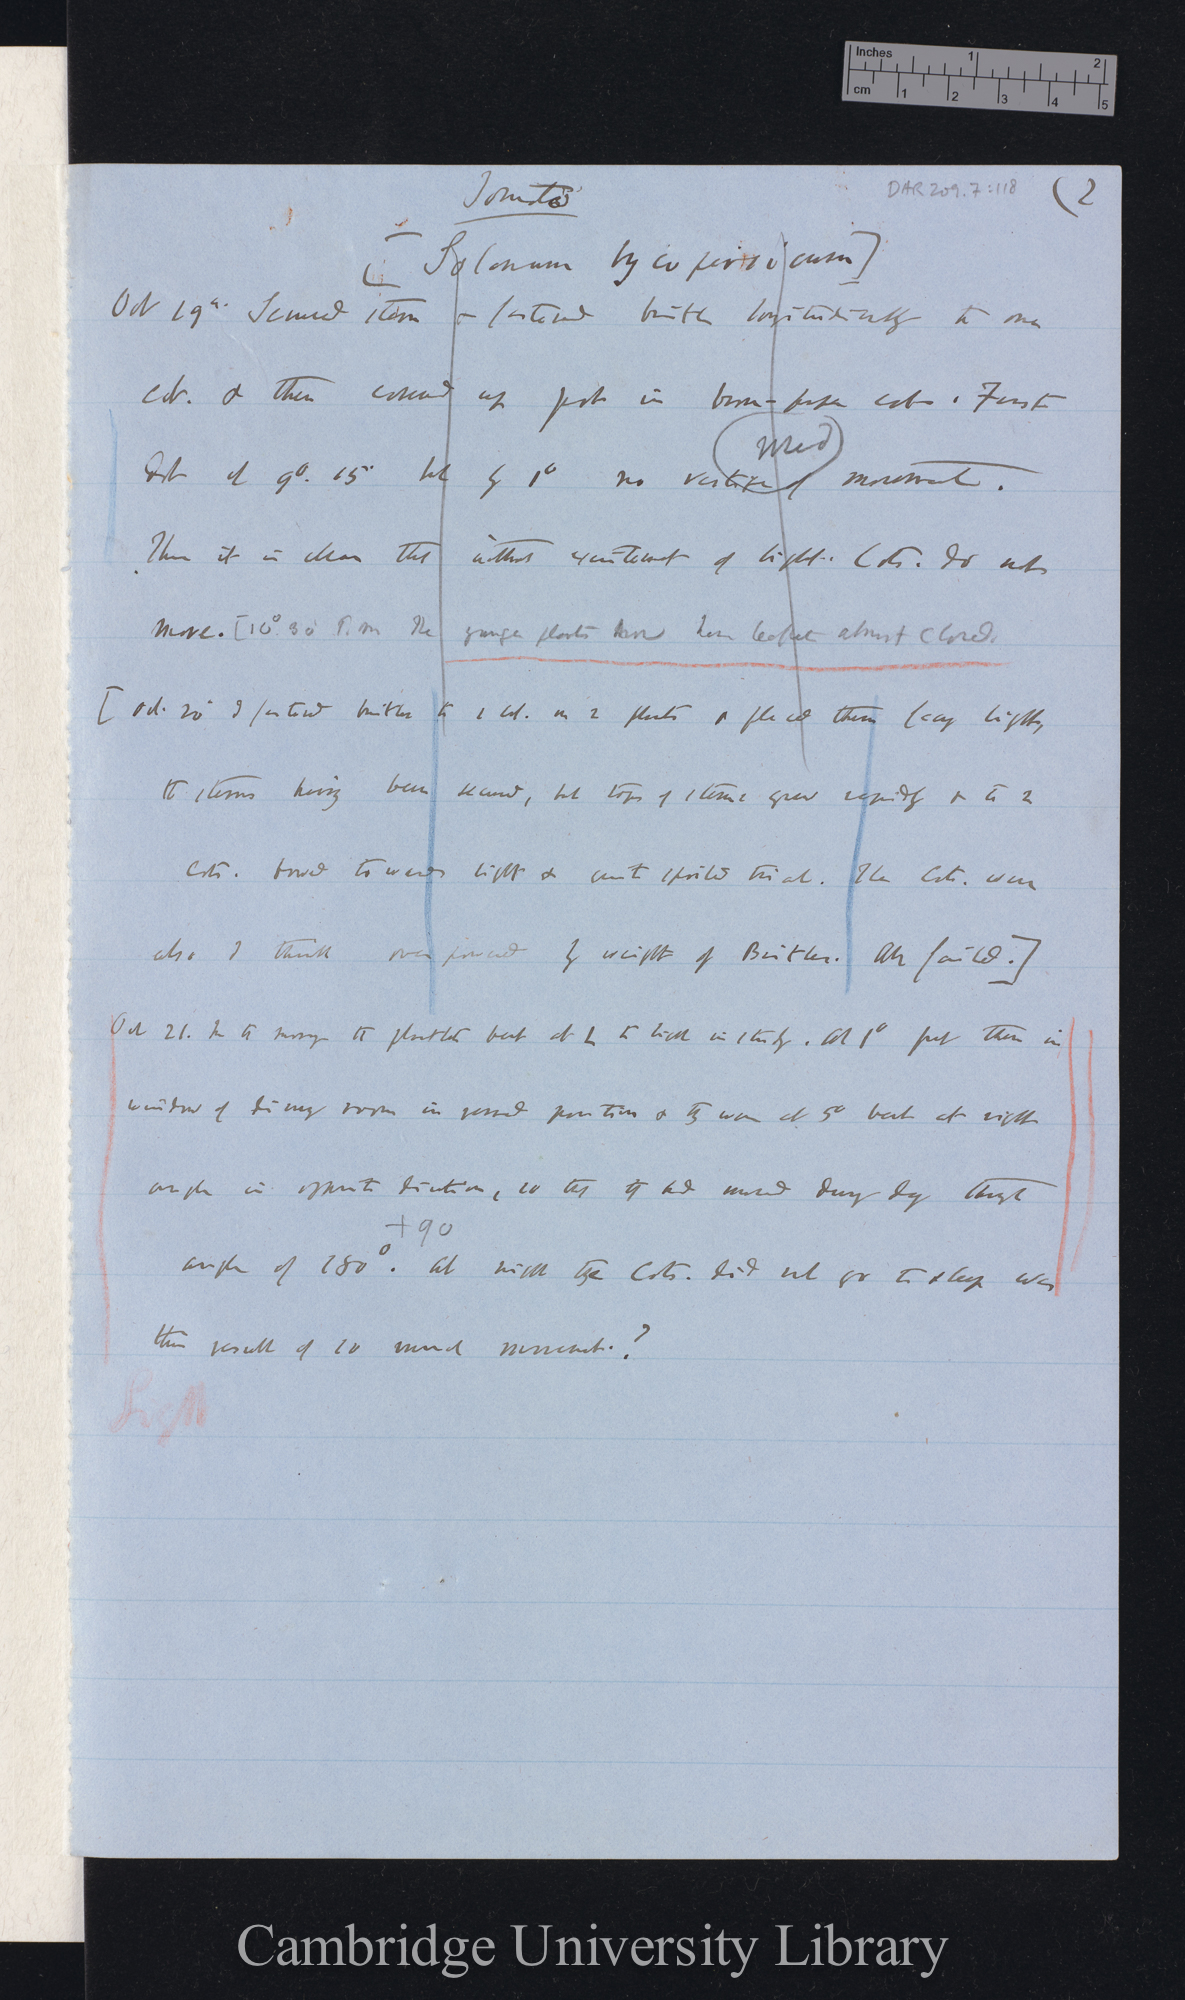 Tomato
DAR 209.7:118
(2
[Solanum lycopersicum]
Oct 19th. Secured stem & fastened bristle longitudinally to one
cot. & then covered up pots in brown-paper
9°. 15' but by 1° no vestige of movement.
med
Thus it is clear that without excitement of light. Cots. do not
move. [10° 30' P.m. The younger plants have their leaflets almost closed.
[Oct. 20 I fastened bristles to 1 cot. on 2 plants & placed them facing light,
the stems having been secured, but tops of stems grew rapidly & the 2
Cots. bowed towards light & quite spoiled trial. The Cots. were
also I think overpowered by weight of Bristles. All failed.]
Oct 21. In the morning the plants bent at to light in study. At 1° put them in
window of dining room in position & they were at 5° bent at right
angle in opposite direction, so that they had moved during day through
+90
angle of 180°. At night the Cots. did not go to sleep was
this result of so much movement.?
Inches
1
2
cm
1
2
3
4
5
Cambridge University Library